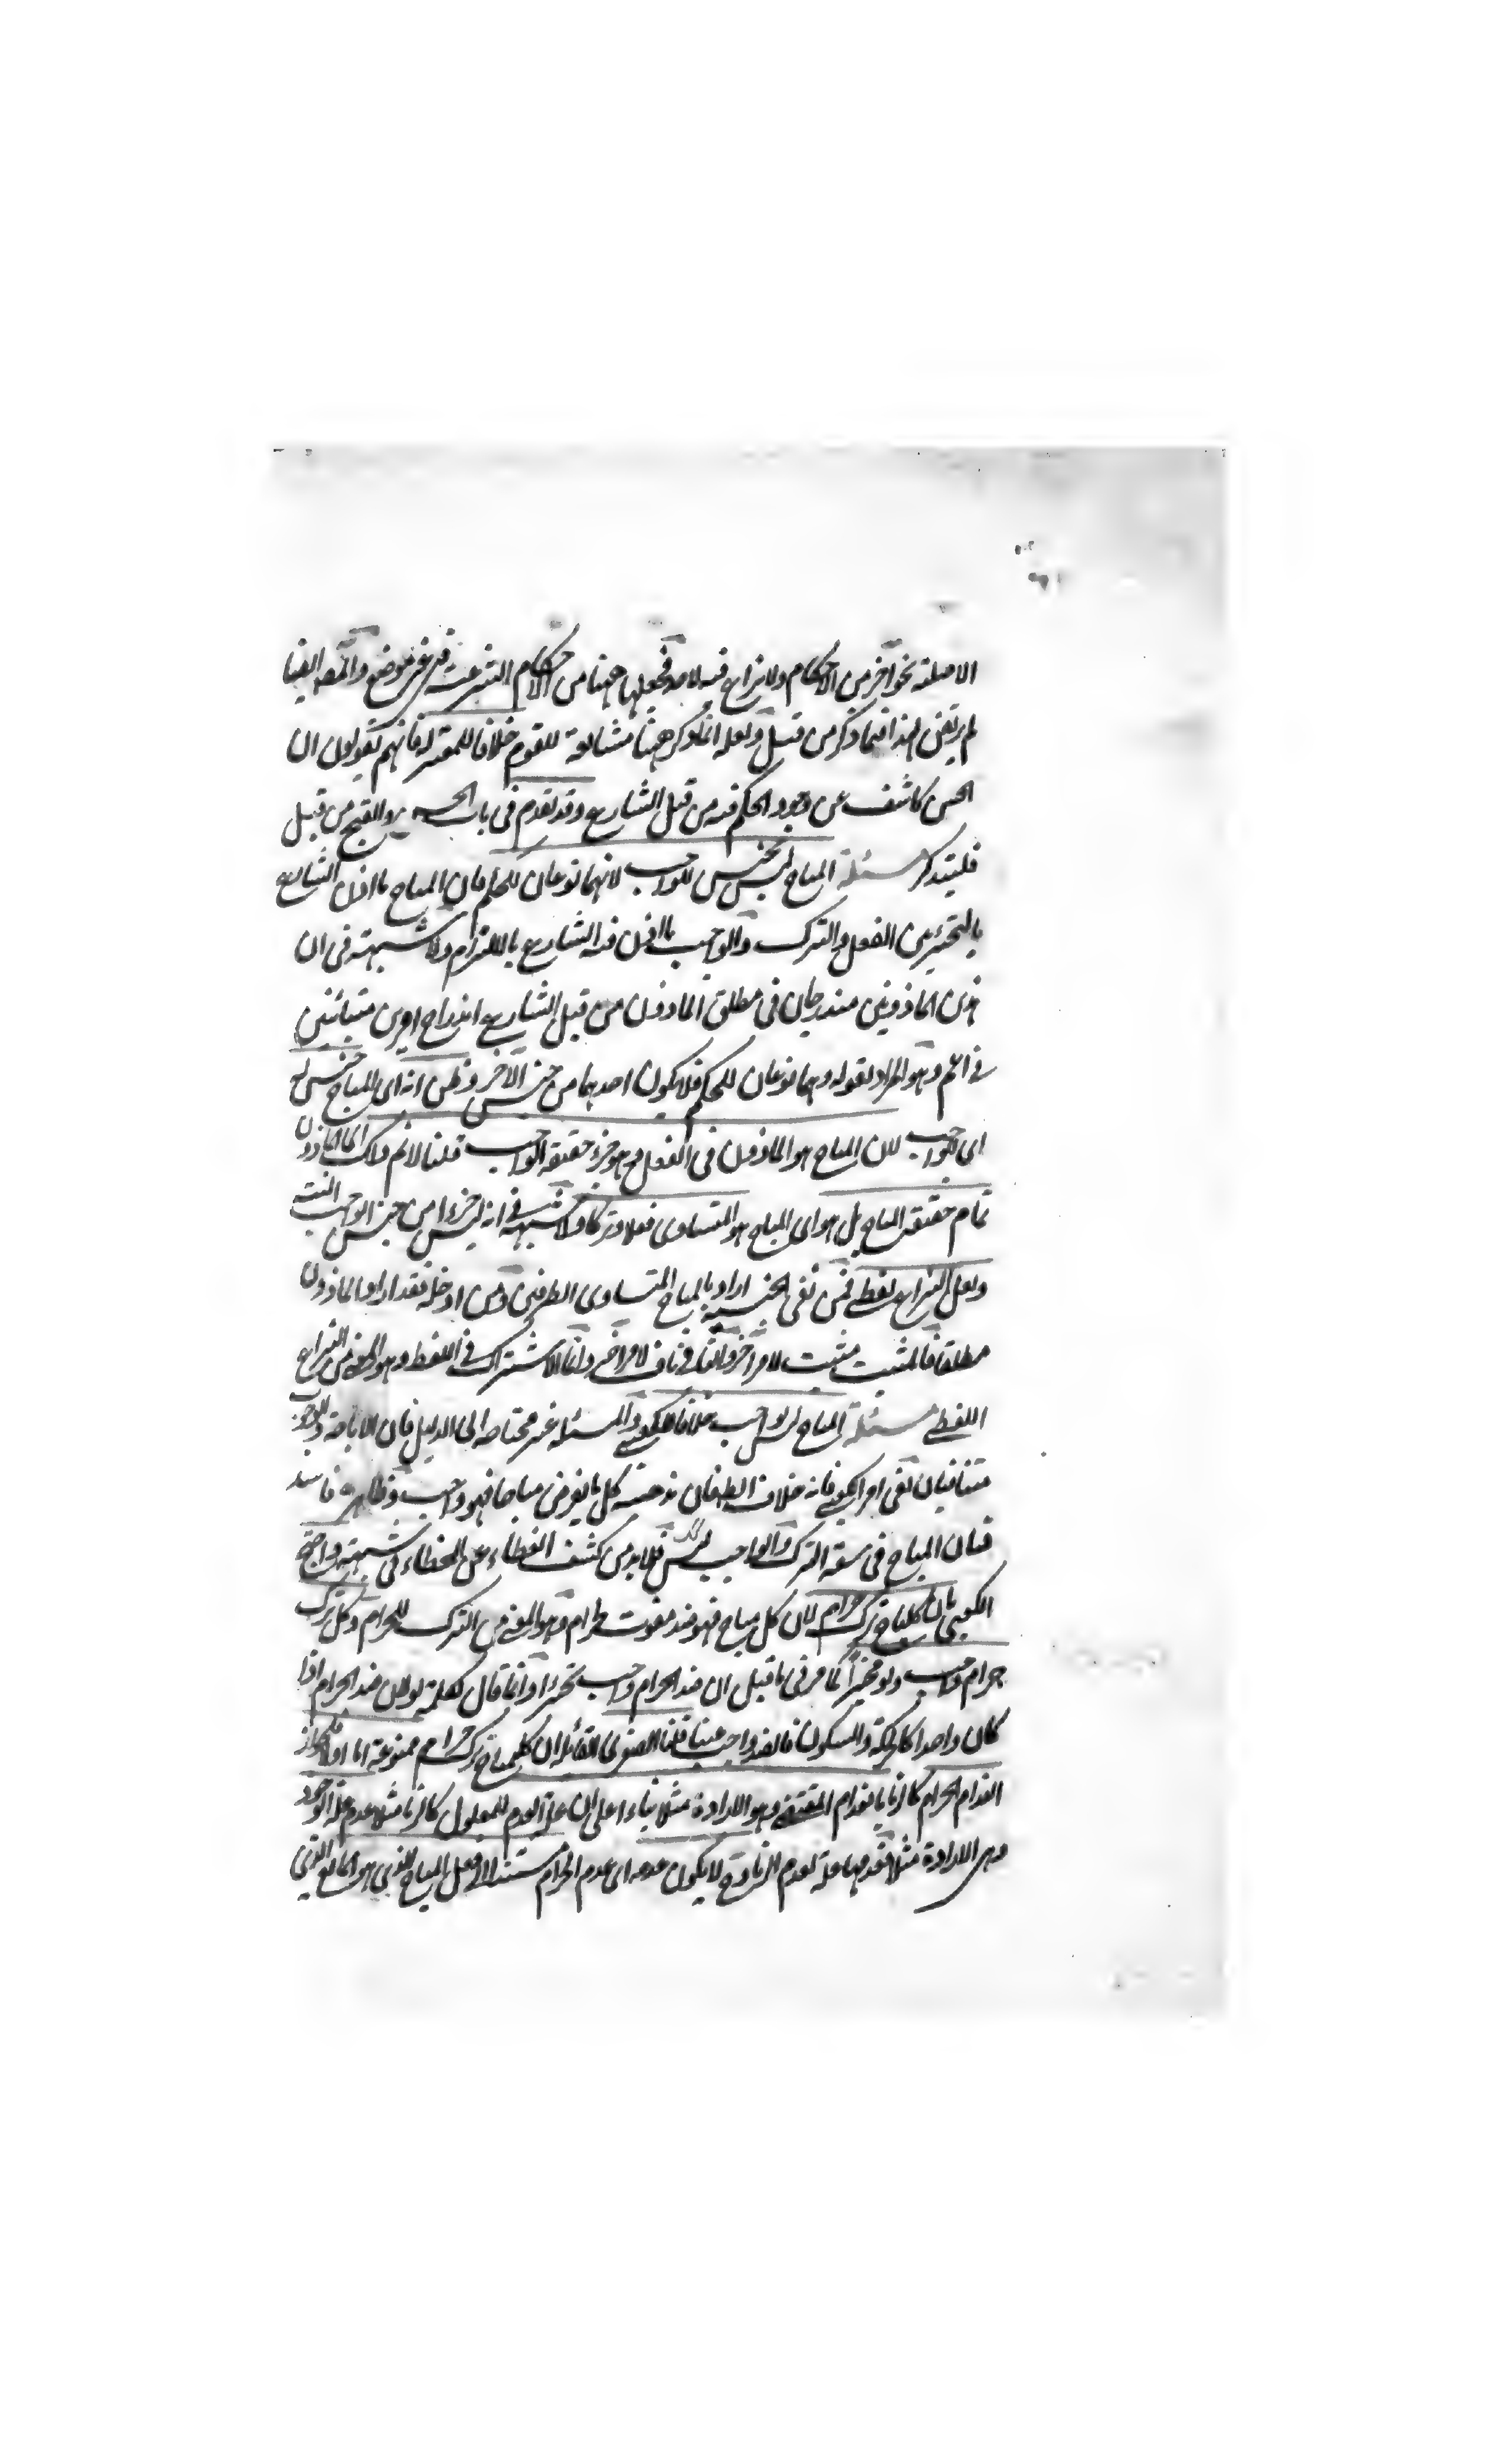 الاصلية نحو آخر من الاحكام ولا نزاع فيه لاحد فجعلها ههنا من الاحكام الشرعية في غير موضع والمص ايضا
لم يرتض لهذا فيما ذكر من قبل ولعله انما ذكر ههنا مشايعة للقوم خلافا للمعتزلة فانهم يقولون ان
الحسن كاشف عن وجود الحكم فيه من قبل الشارع وقد تقدم في باب الحسن والقبح من قبل
فليتذكر مسئلة المباح ليس بجنس للواجب لانهما نوعان للحكم فان المباح ما اذن الشارع
بالتخيير بين الفعل والترك والواجب ما اذن فيه الشارع بالالتزام ولا شبهة في ان
هذين الماذونين مندرجان في مطلق الماذون من قبل الشارع اندراج امرين متبائنين
في اعم وهو المراد بقوله وهما نوعان للحكم فلا يكون احدهما من جنس الآخر وظن انه اي المباح جنس له
اي للواجب لان المباح هو الماذون في الفعل وهو جزء حقيقة الواجب قلنا لا نم ذلك اي الماذون
تمام حقيقة المباح بل هو اي المباح هو المتساوي فعلا وتركا ولا شبهة في انه ليس جزءا من جنس الواجب البتة
ولعل النزاع لفظي فمن نفى الجنسية اراد بالمباح المتساوي الطرفين ومن ادخله فقد اراد الماذون
مطلقا فالمثبت مثبت لامر آخر والنافي ناف لامر آخر وانما الاشتراك في اللفظ وهو المعنى من النزاع
اللفظي مسئلة المباح ليس بواجب خلافا للكعبي والمسئلة غير محتاجة الى الدليل فان الاباحة والوجوب
متنافيان بقي امر الكعبي فانه خلاف الظ فان مذهبه كل ما يفرض مباحا فهو واجب وظاهره فاسد
فان المباح في سعة الترك والواجب ليس كذلك فلا بد من كشف الغطاء عن الخطاء في شبهته واحتج
الكعبي بان كل مباح ترك حرام لان كل مباح فهو ضد مفوت لحرام وهو المعنى من الترك للحرام وكل ترك
حرام واجب ولو مخيرا كما مر في ما قبل ان ضد الحرام واجب تخييرا وانما قال كلمة لو لان ضد الحرام اذا
كان واحدا كالحركة والسكون فالضد واجب عينا قلنا الصغرى القائلة ان كل مباح ترك حرام ممنوعة اما اولا فلجواز
انعدام الحرام كالزنا بانعدام المقتضي وهو الارادة مثلا بناء على ان علة العدم للمعلول كالزنا مثلا عدم علة الوجود
وهي الارادة مثلا فعدمها علة لعدم الزنا وح لا يكون عدمه اي عدم الحرام مستندا الى فعل المباح الذي هو المانع الذي